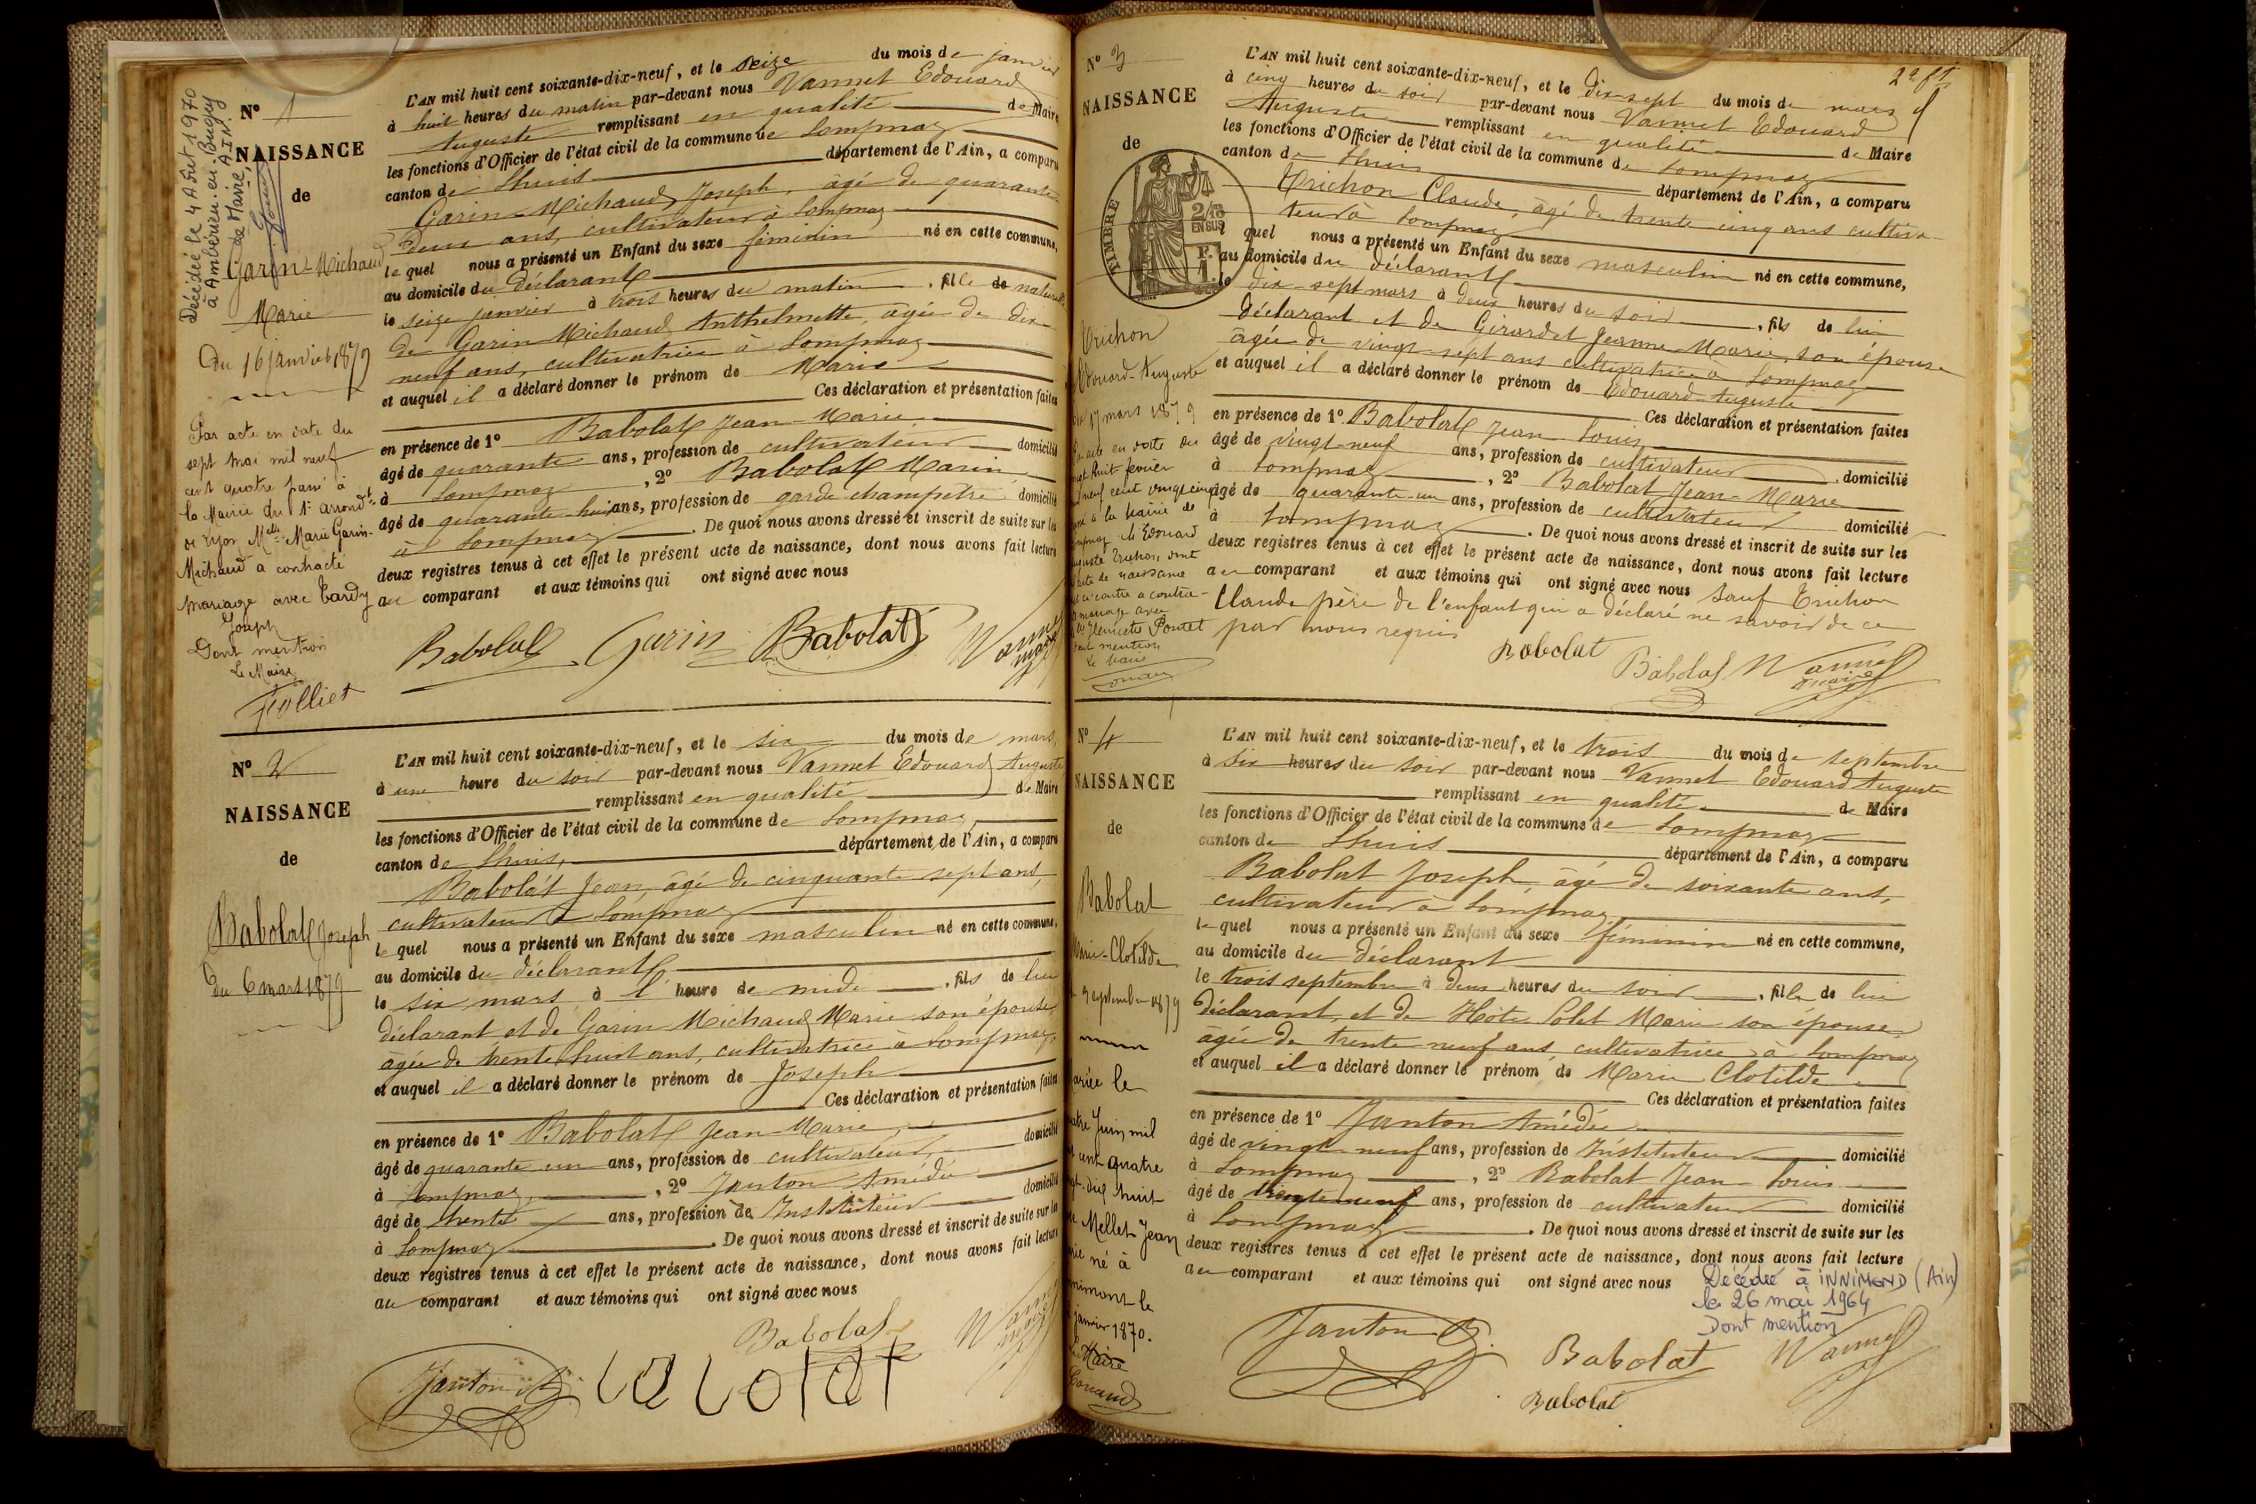 Nº 1
NAISSANCE
de
Garin-Michaud
Marie
Du 16 janvier 1879
Décédée le 4 Août 1970
à Ambérieu-en-Bugey
AIN
Le Maire,
Par acte en date du
sept mai mil neuf
cent quatre passé à
la Mairie du 1er arrondt
de Lyon Melle Marie Garin-
Michaud a contracté
mariage avec Tardy
Joseph
Dont mention
Le Maire
Folliet
L'AN mil huit cent soixante-dix-neuf, et le seize du mois de janvier
à huit heures du matin par-devant nous Vannet Edouard
Auguste remplissant en qualité de Maire
les fonctions d'Officier de l'état civil de la commune de Lompnaz
canton de Lhuis département de l'Ain, a comparu
Garin-Michaud Joseph, âgé de quarante
deux ans, cultivateur à Lompnaz
lequel nous a présenté un Enfant du sexe féminin né en cette commune,
au domicile du déclarant
le seize janvier à trois heures du matin, fille naturelle
de Garin Michaud Anthelmette, âgée de dix-
neuf ans, cultivatrice à Lompnaz
et auquel il a déclaré donner le prénom de Marie
Ces déclaration et présentation faites
en présence de 1º Babolat Jean-Marie
âgé de quarante ans, profession de cultivateur domicilié
à Lompnaz, 2º Babolat Marin
âgé de quarante huit ans, profession de garde champêtre domicilié
à Lompnaz. De quoi nous avons dressé et inscrit de suite sur les
deux registres tenus à cet effet le présent acte de naissance, dont nous avons fait lecture
au comparant et aux témoins qui ont signé avec nous
Babolat Garin Babolat Vannet
maire
Nº 2
NAISSANCE
de
Babolat Joseph
Du 6 mars 1879
L'AN mil huit cent soixante-dix-neuf, et le six du mois de mars
à une heure du soir par-devant nous Vannet Edouard Auguste
remplissant en qualité de Maire
les fonctions d'Officier de l'état civil de la commune de Lompnaz
canton de Lhuis, département de l'Ain, a comparu
Babolat Jean, âgé de cinquante sept ans,
cultivateur à Lompnaz
lequel nous a présenté un Enfant du sexe masculin né en cette commune,
au domicile du déclarant
le six mars à l'heure de midi, fils de lui
déclarant et de Garin Michaud Marie son épouse
âgée de trente huit ans, cultivatrice à Lompnaz
et auquel il a déclaré donner le prénom de Joseph
Ces déclaration et présentation faites
en présence de 1º Babolat Jean Marie
âgé de quarante un ans, profession de cultivateur, domicilié
à Lompnaz, 2º Janton Amédée
âgé de trente ans, profession de Instituteur domicilié
à Lompnaz. De quoi nous avons dressé et inscrit de suite sur les
deux registres tenus à cet effet le présent acte de naissance, dont nous avons fait lecture
au comparant et aux témoins qui ont signé avec nous
Babolat Vannet
maire
Janton babolat
2e ft
Nº 3
NAISSANCE
de
TIMBRE
2/10
EN SUS
Trichon
Edouard-Auguste
du 17 mars 1879
Par acte en date du
vingt huit février
neuf cent vingt cinq
à la Mairie de
Lompnaz le Edouard
Auguste Trichon dont
acte de naissance
ci contre a contracté
mariage avec
Poutet
dont mention
Le Maire
L'AN mil huit cent soixante-dix-neuf, et le dix-sept du mois de mars
à cinq heures du soir par-devant nous Vannet Edouard
Auguste remplissant en qualité de Maire
les fonctions d'Officier de l'état civil de la commune de Lompnaz
canton de Lhuis département de l'Ain, a comparu
Trichon Claude, âgé de trente cinq ans cultiva-
teur à Lompnaz
lequel nous a présenté un Enfant du sexe masculin né en cette commune,
au domicile du déclarant
le dix-sept mars à deux heures du soir, fils de lui
déclarant et de Girardet Jeanne-Marie, son épouse
âgée de vingt sept ans cultivatrice à Lompnaz
et auquel il a déclaré donner le prénom de Edouard-Auguste
Ces déclaration et présentation faites
en présence de 1º Babolat Jean Louis
âgé de vingt-neuf ans, profession de cultivateur domicilié
à Lompnaz, 2º Babolat Jean-Marie
âgé de quarante-un ans, profession de cultivateur domicilié
à Lompnaz. De quoi nous avons dressé et inscrit de suite sur les
deux registres tenus à cet effet le présent acte de naissance, dont nous avons fait lecture
au comparant et aux témoins qui ont signé avec nous sauf Trichon
Claude père de l'enfant qui a déclaré ne savoir de ce
par nous requis
Babolat Babolat Vannet
maire
Nº 4
NAISSANCE
de
Babolat
Marie-Clotilde
3 septembre 1879
mariée le
quatre Juin mil
huit cent quatre
vingt dix huit
Mellet Jean
né à
Innimont le
janvier 1870.
Le Maire
L'AN mil huit cent soixante-dix-neuf, et le trois du mois de septembre
à six heures du soir par-devant nous Vannet Edouard Auguste
remplissant en qualité de Maire
les fonctions d'Officier de l'état civil de la commune de Lompnaz
canton de Lhuis département de l'Ain, a comparu
Babolat Joseph, âgé de soixante ans,
cultivateur à Lompnaz
lequel nous a présenté un Enfant du sexe féminin né en cette commune,
au domicile du déclarant
le trois septembre à deux heures du soir, fille de lui
déclarant, et de Hôte Solet Marie son épouse
âgée de trente neuf ans cultivatrice à Lompnaz
et auquel il a déclaré donner le prénom de Marie Clotilde
Ces déclaration et présentation faites
en présence de 1º Janton Amédée
âgé de vingt neuf ans, profession de Instituteur domicilié
à Lompnaz, 2º Babolat Jean-Louis
âgé de trente neuf ans, profession de cultivateur domicilié
à Lompnaz. De quoi nous avons dressé et inscrit de suite sur les
deux registres tenus à cet effet le présent acte de naissance, dont nous avons fait lecture
au comparant et aux témoins qui ont signé avec nous
Décédée à INNIMOND (Ain)
le 26 mai 1964
Dont mention
Janton Babolat Vannet
Babolat